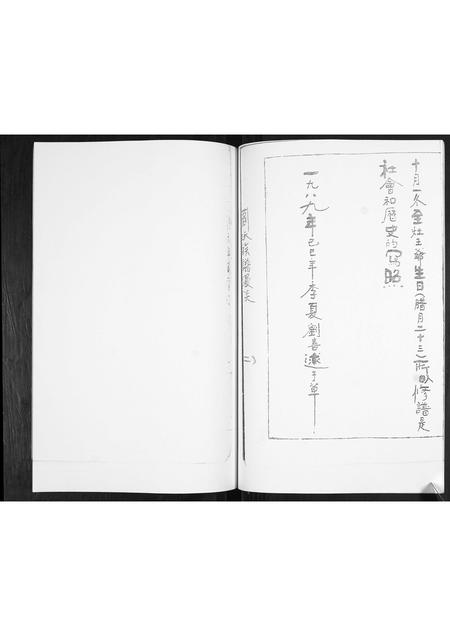 十月一冬至灶王爷生日(腊月二十三)所以修譜是
社會和歷史的寫照
一九八九年己巳年李夏劉喜 于草
劉氏族譜
(二)